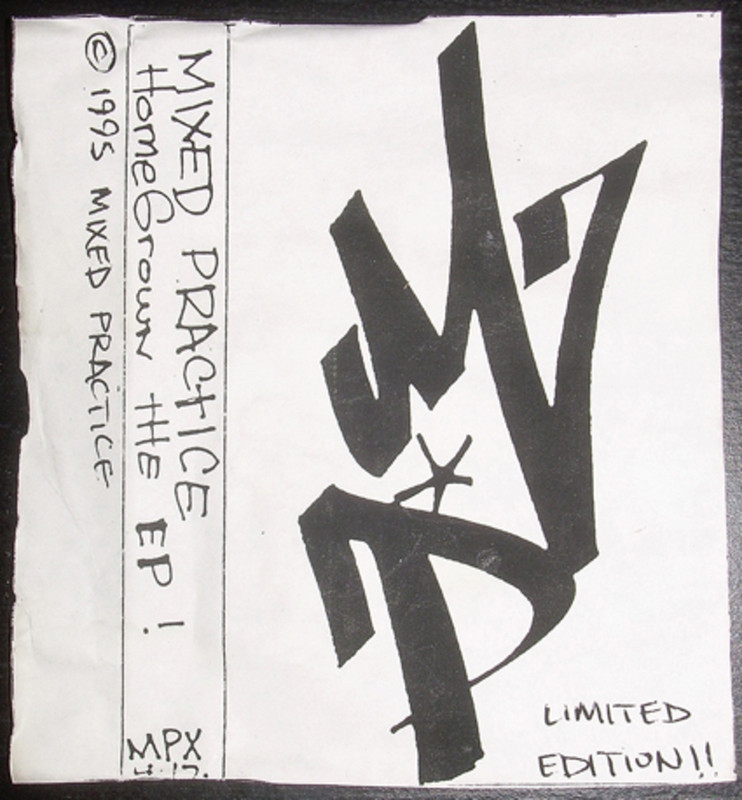 © 1995 MIXED PRACTICE
MIXED PRACTICE
HomeGrown THE EP!
MPX
LIMITED
EDITION!!